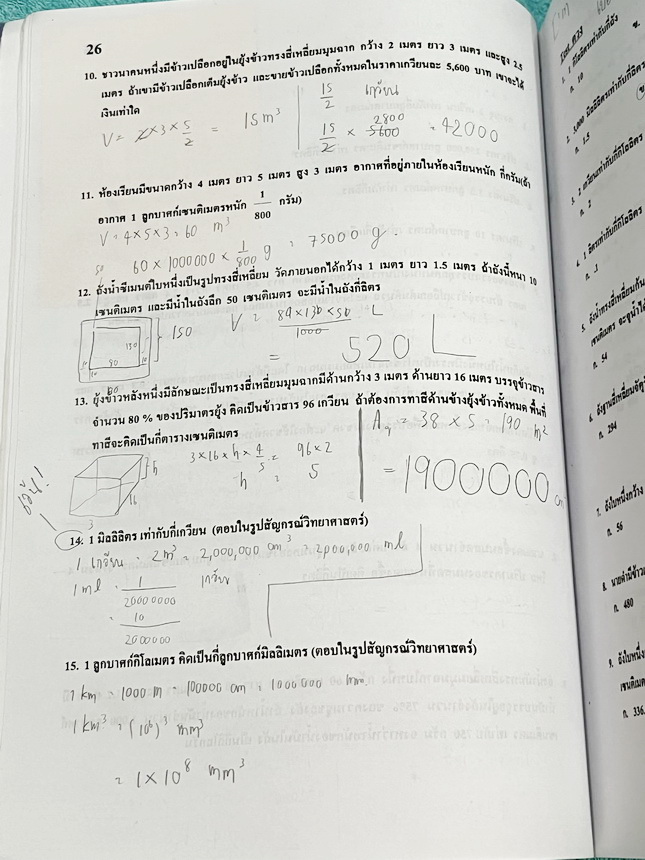 26
10. ชาวนาคนหนึ่งมีข้าวเปลือกอยู่ในยุ้งข้าวทรงสี่เหลี่ยมมุมฉาก กว้าง 2 เมตร ยาว 3 เมตร และสูง 2.5
เมตร ถ้าเขามีข้าวเปลือกเต็มยุ้งข้าว และขายข้าวเปลือกทั้งหมดในราคาเกวียนละ 5,600 บาท เขาจะได้
เงินเท่าใด
V = 2 × 3 × 5/2 = 15 m³
15/2 เกวียน
15/2 × 5600 2800 = 42000
11. ห้องเรียนมีขนาดกว้าง 4 เมตร ยาว 5 เมตร สูง 3 เมตร อากาศที่อยู่ภายในห้องเรียนหนัก กี่กรัม(ถ้า
อากาศ 1 ลูกบาศก์เซนติเมตรหนัก 1/800 กรัม)
V = 4 × 5 × 3 = 60 m³
60 × 1000000 × 1/800 g = 75000 g.
12. ถังน้ำซีเมนต์ใบหนึ่งเป็นรูปทรงสี่เหลี่ยม วัดภายนอกได้กว้าง 1 เมตร ยาว 1.5 เมตร ถ้าถังนี้หนา 10
เซนติเมตร และมีน้ำในถังลึก 50 เซนติเมตร จะมีน้ำในถังกี่ลิตร
150
130
80
10
10
V = 80 × 130 × 50 / 1000 L
= 520 L
13. ยุ้งข้าวหลังหนึ่งมีลักษณะเป็นทรงสี่เหลี่ยมมุมฉากมีด้านกว้าง 3 เมตร ด้านยาว 16 เมตร บรรจุข้าวสาร
จำนวน 80 % ของปริมาตรยุ้ง คิดเป็นข้าวสาร 96 เกวียน ถ้าต้องการทาสีด้านข้างยุ้งข้าวทั้งหมด พื้นที่
ทาสีจะคิดเป็นกี่ตารางเซนติเมตร
h
16
3
3 × 16 × h × 4/5 = 96 × 2
h = 5
= 38 × 5 = 190 m²
= 1900000 cm
14. 1 มิลลิลิตร เท่ากับกี่เกวียน (ตอบในรูปสัญกรณ์วิทยาศาสตร์)
1 เกวียน = 2 m³ = 2,000,000 cm³ = 2,000,000 ml
1 ml = 1/2000000 เกวียน
= 10/2000000
15. 1 ลูกบาศก์กิโลเมตร คิดเป็นกี่ลูกบาศก์มิลลิเมตร (ตอบในรูปสัญกรณ์วิทยาศาสตร์)
1 km = 1000 m = 100000 cm = 1000000 mm
1 km³ = (10⁶)³ mm³
= 1 × 10⁸ mm³
ก. 10
ก. 1.5
ก. 2
ก. .1
ก. 54
ก. 294
ก. 56
ก. 480
ก. 336.